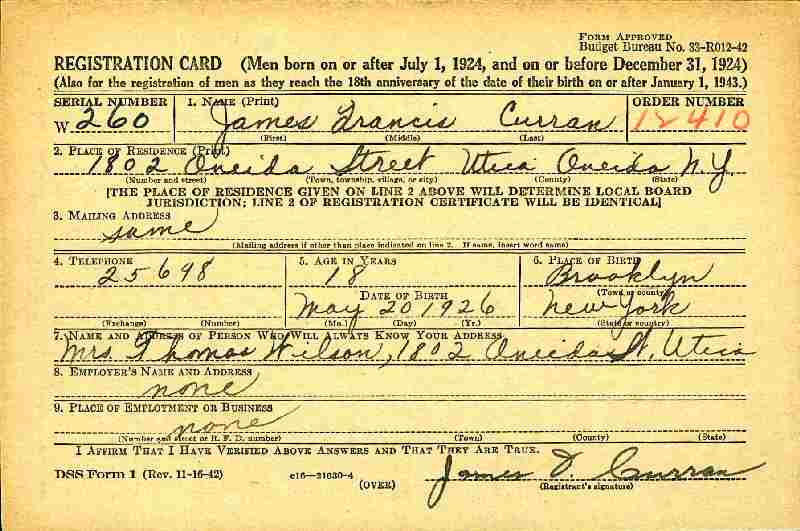 FORM APPROVED
Budget Bureau No. 33-R012-42
REGISTRATION CARD (Men born on or after July 1, 1924, and on or before December 31, 1924)
(Also for the registration of men as they reach the 18th anniversary of the date of their birth on or after January 1, 1943.)
SERIAL NUMBER 1. NAME (Print) ORDER NUMBER
W 260 James Francis Curran 12410
(First) (Middle) (Last)
2. PLACE OF RESIDENCE (Print)
1802 Oneida Street Utica Oneida N.Y.
(Number and street) (Town, township, village, or city) (County) (State)
[THE PLACE OF RESIDENCE GIVEN ON LINE 2 ABOVE WILL DETERMINE LOCAL BOARD
JURISDICTION; LINE 2 OF REGISTRATION CERTIFICATE WILL BE IDENTICAL]
3. MAILING ADDRESS
same
(Mailing address if other than place indicated on line 2. If same, insert word same)
4. TELEPHONE 5. AGE IN YEARS 6. PLACE OF BIRTH
25698 18 Brooklyn
DATE OF BIRTH (Town or county)
May 20 1926 New York
(Exchange) (Number) (Mo.) (Day) (Yr.) (State or country)
7. NAME AND ADDRESS OF PERSON WHO WILL ALWAYS KNOW YOUR ADDRESS
Mrs. Thomas Wilson, 1802 Oneida St. Utica
8. EMPLOYER'S NAME AND ADDRESS
none
9. PLACE OF EMPLOYMENT OR BUSINESS
none
(Number and street or R. F. D. number) (Town) (County) (State)
I AFFIRM THAT I HAVE VERIFIED ABOVE ANSWERS AND THAT THEY ARE TRUE.
DSS Form 1 (Rev. 11-16-42) c16—21630-4 James F. Curran
(OVER) (Registrant's signature)